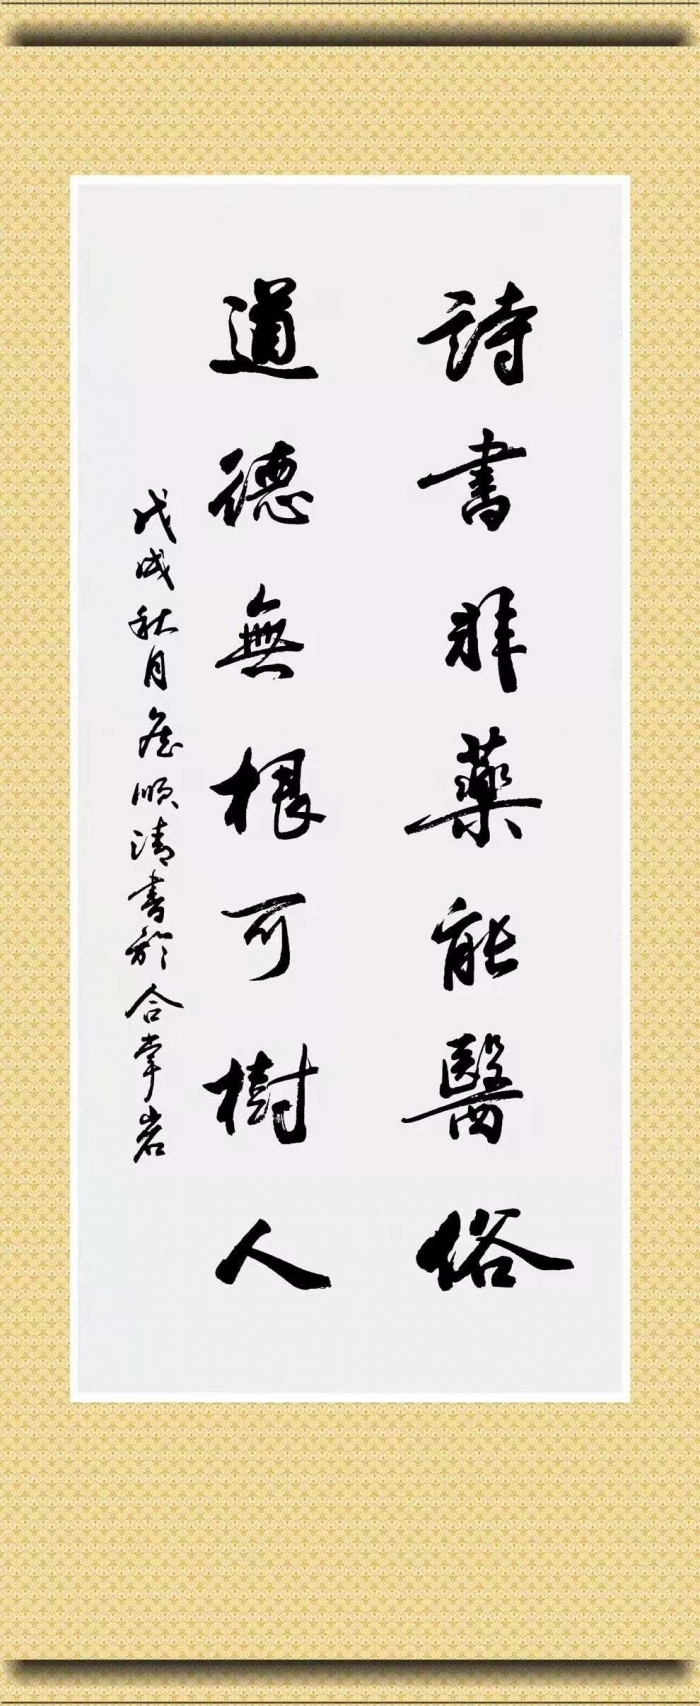 詩書非藥能醫俗
道德無根可樹人
戊戌秋月詹順清書於合掌岩